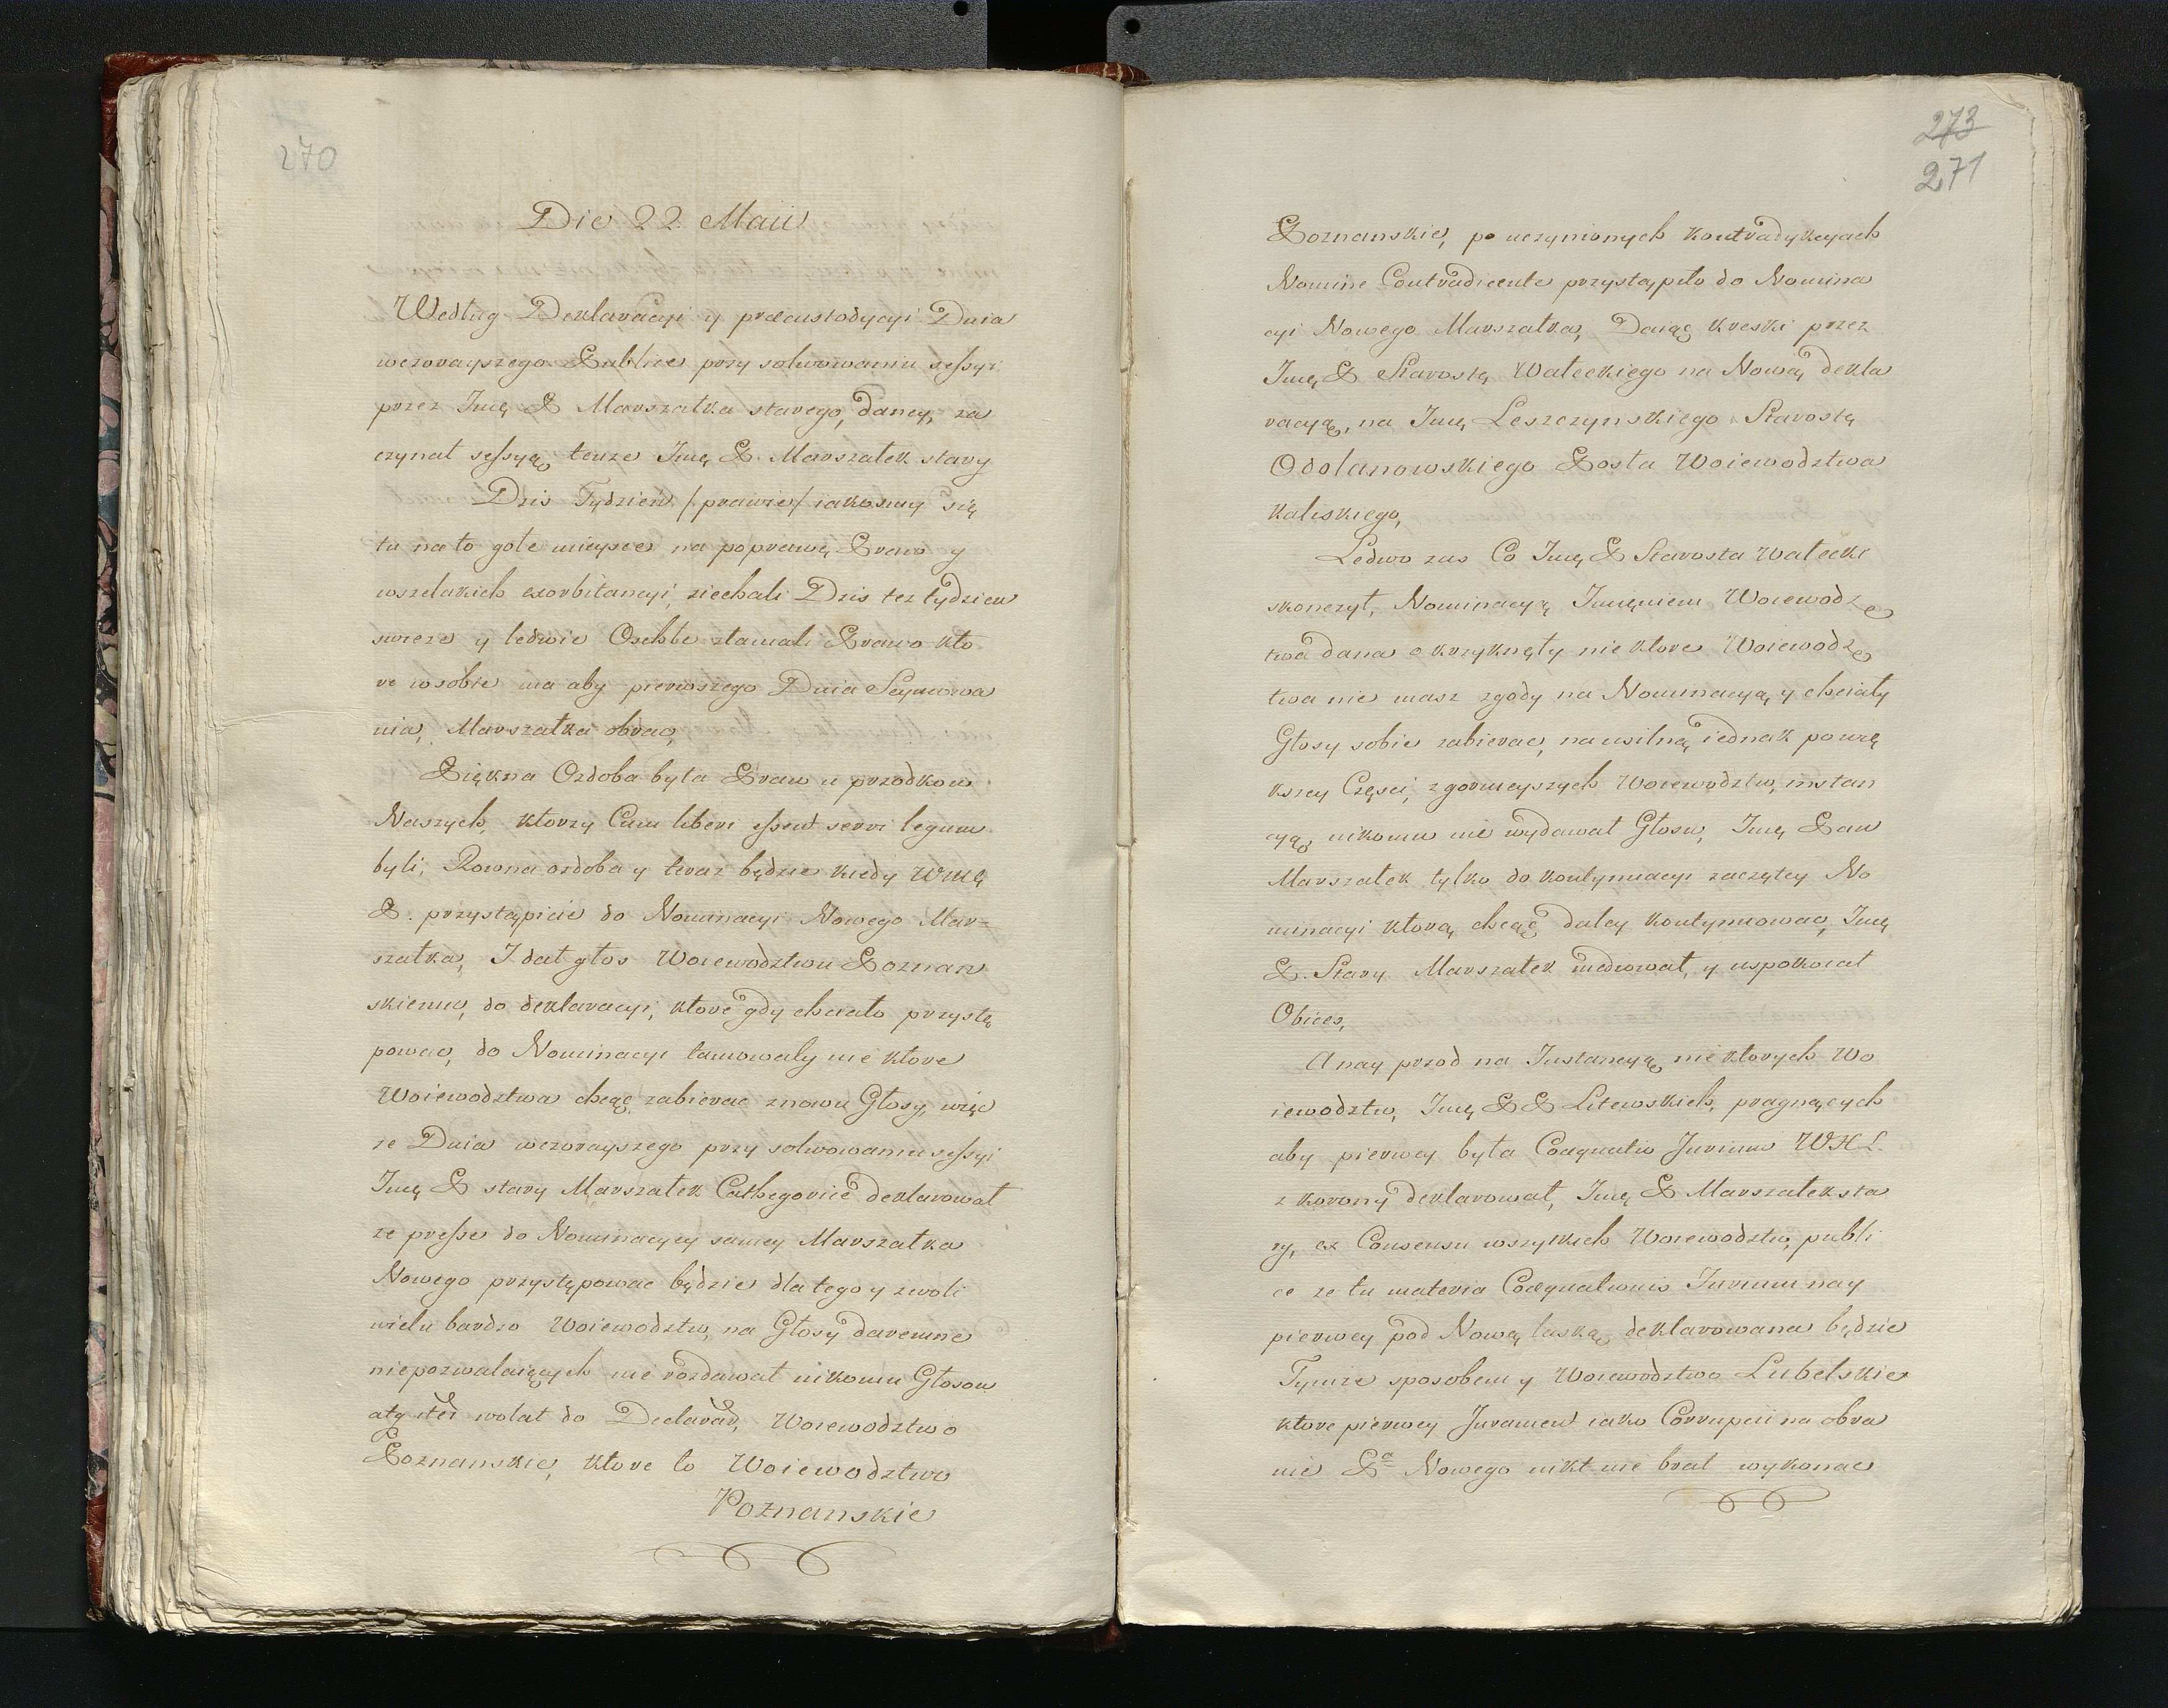 270
Die 22 Maii
Według Deklaracyi y praecustodycyi Dnia
wczorayszego Publice przy solwowaniu sessyi
przez Jmę P Marszałka starego, daney, za
czynał sessyą tenze Jmę P. Marszałek stary
Dzis Tydzien /prawie/ iakosmy się
tu na to gołe mieysce na poprawę Prawo y
wszelakich exorbitancyi, ziechali Dzis tez tydzien
swieze y ledwie Oschłe złamali Prawo kto
re w sobie ma aby pierwszego Dnia Seymowa
nia, Marszałka obrac,
Piękna Ozdoba była Praw u przodkow
Naszych, ktorzy Cum liberi essent servi legum
byli; Rowna ozdoba y teraz będzie kiedy WMę
P. przystąpicie do Nominacyi Nowego Mar=
szałka, I dał głos Woiewodztwu Poznan
skiemu, do deklaracyi, ktore gdy chciało przystę
powac, do Nominacyi tamowały nie ktore
Woiewodztwa chcąc zabierac znowu Głosy, więc
ze Dnia wczorayszego przy solwowaniu sessyi
Jmę P stary Marszałek Cathegorice deklarował
ze presse do Nominacyey samey Marszałka
Nowego przystępowac będzie dla tego y zwoli
wielu bardzo Woiewodztw, na Głosy daremne
niepozwalaiących nie rozdawał nikomu Głosow
atq iteř wołał do Declarãd, Woiewodztwo
Poznanskie, ktore to Woiewodztwo
Poznanskie
273
271
Poznanskie, po uczynionych kontradykcyach
Nomine Contradicente przystąpiło do Nomina
cyi Nowego Marszałka, Daiąc kreski przez
Jmę P Starostę Wałeckiego na Nową dekla
racyą, na Jmę Leszczynskiego Starostę
Odolanowskiego Posła Woiewodztwa
kaliskiego,
Ledwo zas Co Jmę P Starosta Wałecki
skonczył, Nominacyą Jmęniem Woiewodz
twa dana okrzyknęły nie ktore Woiewodz
twa nie masz zgody na Nominacyą, y chciały
Głosy sobie zabierac, na usilną iednak powię
kszey Częsci, zgornieyszych Woiewodztw, instan
cyą, nikomu nie wydawał Głosu, Jmę Pan
Marszałek tylko do kontynuacyi zaczętey No
minacyi ktorą chcąc daley kontynuowac, Jmę
P. Stary Marszałek mediował, y uspokoiał
Obices,
A nay przod na Instancyą nie ktorych Wo
iewodztw, Jmę P P Litewskich, pragnących
aby pierwey była Coaquatio Jurium WXL.
z korony deklarował, Jmę P Marszałek sta
ry, ex Consensu wszytkich Woiewodztw, publi
ce ze tu materia Coaequationis Jurium nay
pierwey pod Nową laską deklarowana będzie
Tymze sposobem y Woiewodztwo Lubelskie
ktore pierwey Jurament iako Corrupcii na obra
nie Pa Nowego nikt nie brał wykonac